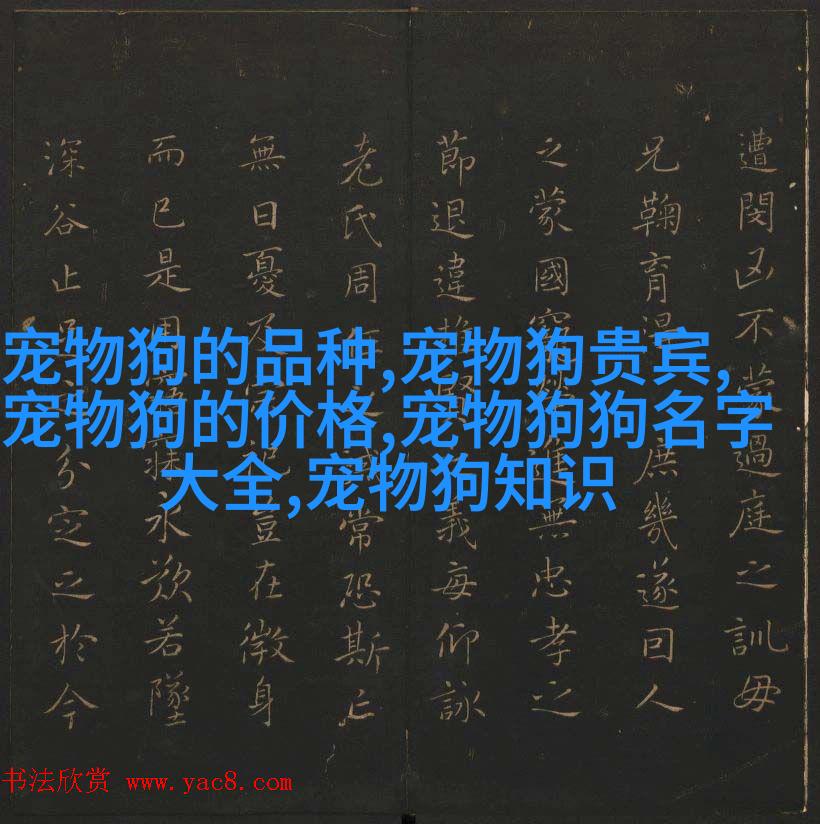 遭閔凶不蒙過庭之訓毋
兄鞠育庶幾遂回人
之蒙國無忠孝之
節退違義每仰詠
老氏周常恐斯亡
無日憂及豈在微身
而已是用永歎若墜
深谷止分定之於今
宠物狗的品种,宠物狗贵宾,
宠物狗的价格,宠物狗狗名字
大全,宠物狗知识
书法欣赏 www.yac8.com